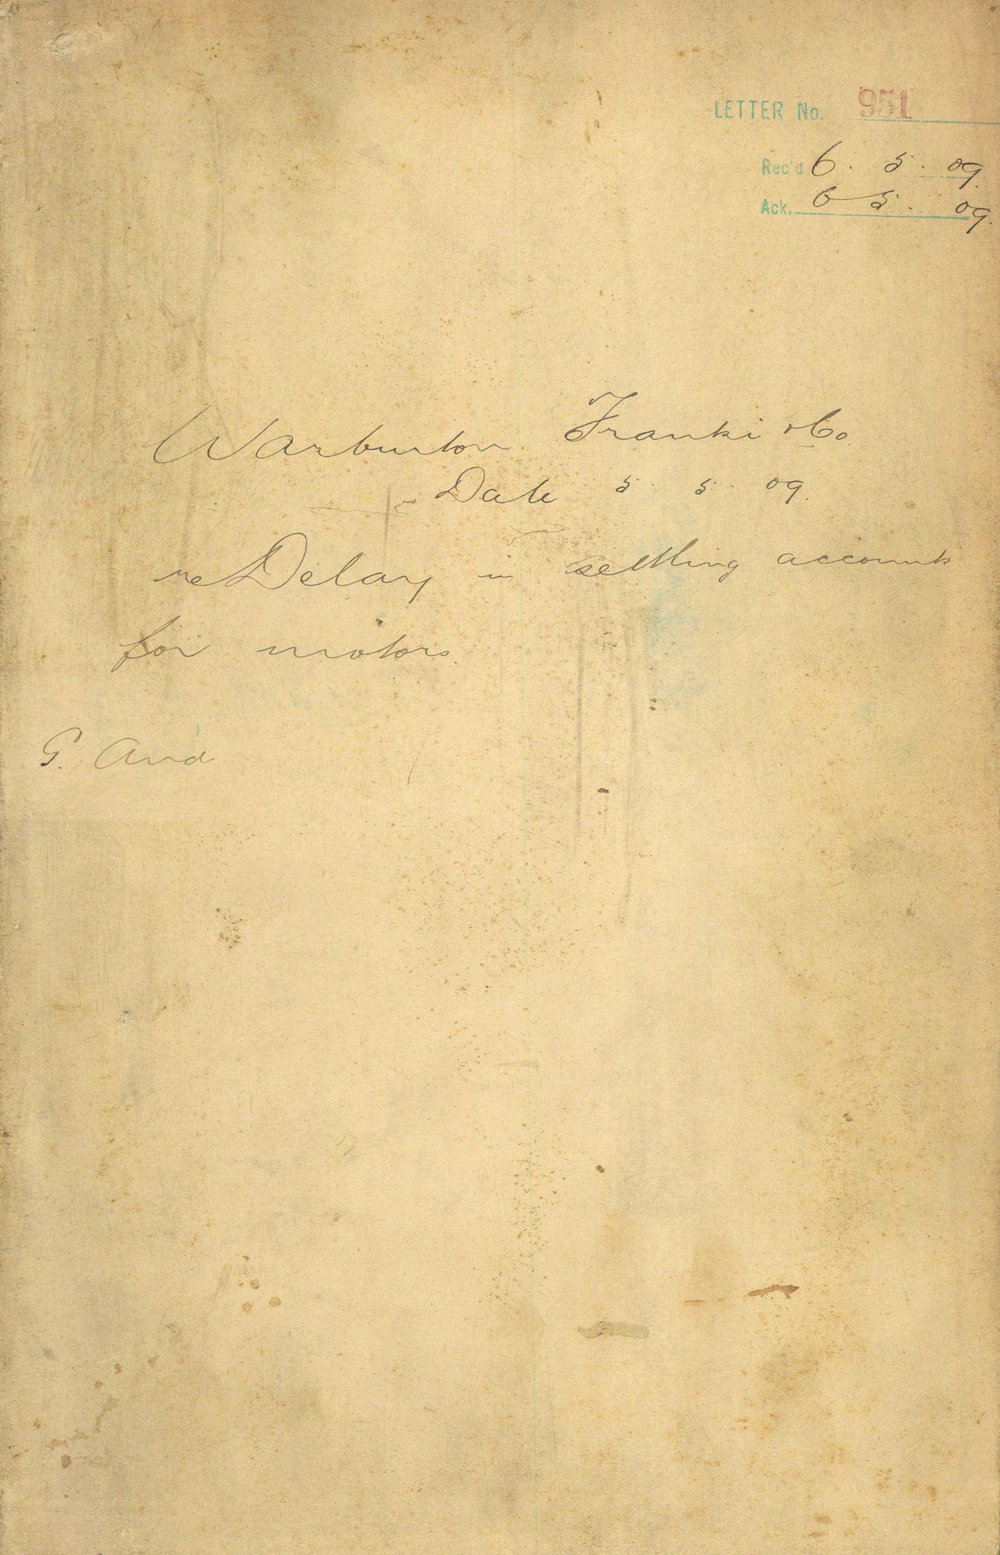 LETTER No. 951
Rec'd 6. 5. 09.
Ack. 6 5. 09.
Warburton Franki & Co.
Date 5. 5. 09.
re Delay in settling accounts
for motors.
G.